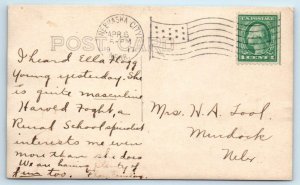 POST CARD
NEBRASKA CITY
APR 8
5-PM
U.S. POSTAGE
1 CENT 1
I heard Ella Flagg
Young yesterday. She
is quite masculine
Harold Foght, a
Rural School specialist
interests me even
more than she does
We are having plenty of
fun too.
Mrs. H. A. Tool.
Murdock
Nebr